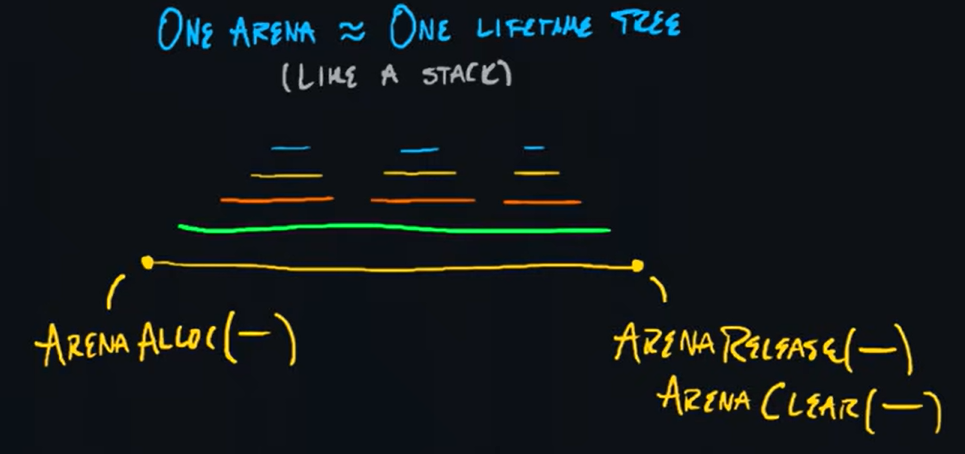 ONE ARENA ≈ ONE LIFETIME TREE
(LIKE A STACK)
ARENAALLOC(—)
ARENARELEASE(—)
ARENACLEAR(—)